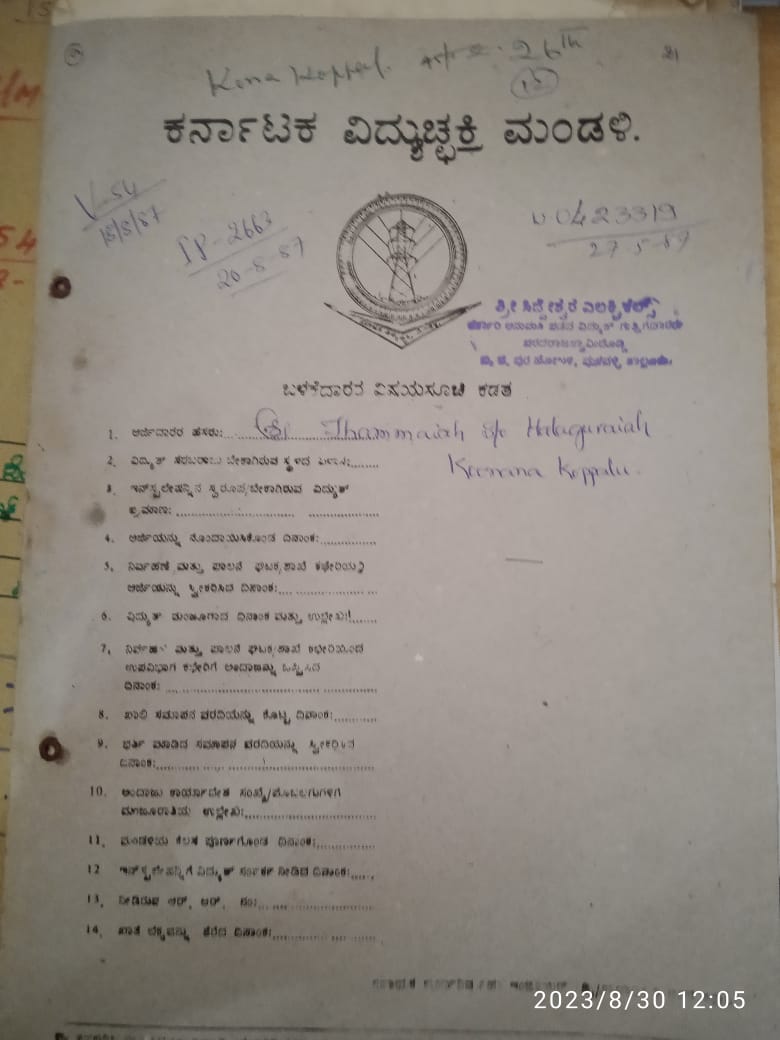 Kona Koppal. 26th
21
12
ಕರ್ನಾಟಕ ವಿದ್ಯುಚ್ಛಕ್ತಿ ಮಂಡಳಿ.
V-54
18/8/87
PP-2663
20-8-87
0423319
27-5-89
ಶ್ರೀ ಸಿದ್ದೇಶ್ವರ ಎಲೆಕ್ಟ್ರಿಕಲ್ಸ್
ಬಳಕೆದಾರನ ವಿಷಯಸೂಚಿ ಕಡತ
1. ಅರ್ಜಿದಾರರ ಹೆಸರು: Sri Thammaiah S/o Halaguraiah
2. ವಿದ್ಯುತ್ ಸರಬರಾಜು ಬೇಕಾಗಿರುವ ಸ್ಥಳದ ವಿಳಾಸ:........ Konana Koppalu.
3. ಇನ್‌ಸ್ಟಲೇಷನ್ನಿನ ಸ್ವರೂಪ/ಬೇಕಾಗಿರುವ ವಿದ್ಯುತ್
ಪ್ರಮಾಣ:
4. ಅರ್ಜಿಯನ್ನು ನೊಂದಾಯಿಸಿಕೊಂಡ ದಿನಾಂಕ:
5. ನಿರ್ವಹಣೆ ಮತ್ತು ಪಾಲನೆ ಘಟಕ/ಶಾಖೆ ಕಛೇರಿಯು
ಅರ್ಜಿಯನ್ನು ಸ್ವೀಕರಿಸಿದ ದಿನಾಂಕ:
6. ವಿದ್ಯುತ್ ಮಂಜೂರಾದ ದಿನಾಂಕ ಮತ್ತು ಉಲ್ಲೇಖ:
7. ನಿರ್ವಹಣೆ ಮತ್ತು ಪಾಲನೆ ಘಟಕ/ಶಾಖೆ ಕಛೇರಿಯಿಂದ
ಉಪವಿಭಾಗ ಕಛೇರಿಗೆ ಅಂದಾಜನ್ನು ಒಪ್ಪಿಸಿದ
ದಿನಾಂಕ:
8. ಖಾಲಿ ಸಮಾಪನ ವರದಿಯನ್ನು ಕೊಟ್ಟ ದಿನಾಂಕ:
9. ಭರ್ತಿ ಮಾಡಿದ ಸಮಾಪನ ವರದಿಯನ್ನು ಸ್ವೀಕರಿಸಿದ
ದಿನಾಂಕ:
10. ಅಂದಾಜು ಕಾರ್ಯಾದೇಶ ಸಂಖ್ಯೆ/ಮೊಬಲಗುಗಳಿಗೆ
ಮಂಜೂರಾತಿಯ ಉಲ್ಲೇಖ:
11. ಮಂಡಳಿಯ ಕೆಲಸ ಪೂರ್ಣಗೊಂಡ ದಿನಾಂಕ:
12 ಇನ್‌ಸ್ಟಲೇಷನ್ನಿಗೆ ವಿದ್ಯುತ್ ಸಂಪರ್ಕ ನೀಡಿದ ದಿನಾಂಕ:
13. ನೀಡಿರುವ ಆರ್. ಆರ್. ನಂ:
14. ಖಾತೆ ಲೆಕ್ಕವನ್ನು ತೆರೆದ ದಿನಾಂಕ:
2023/8/30 12:05